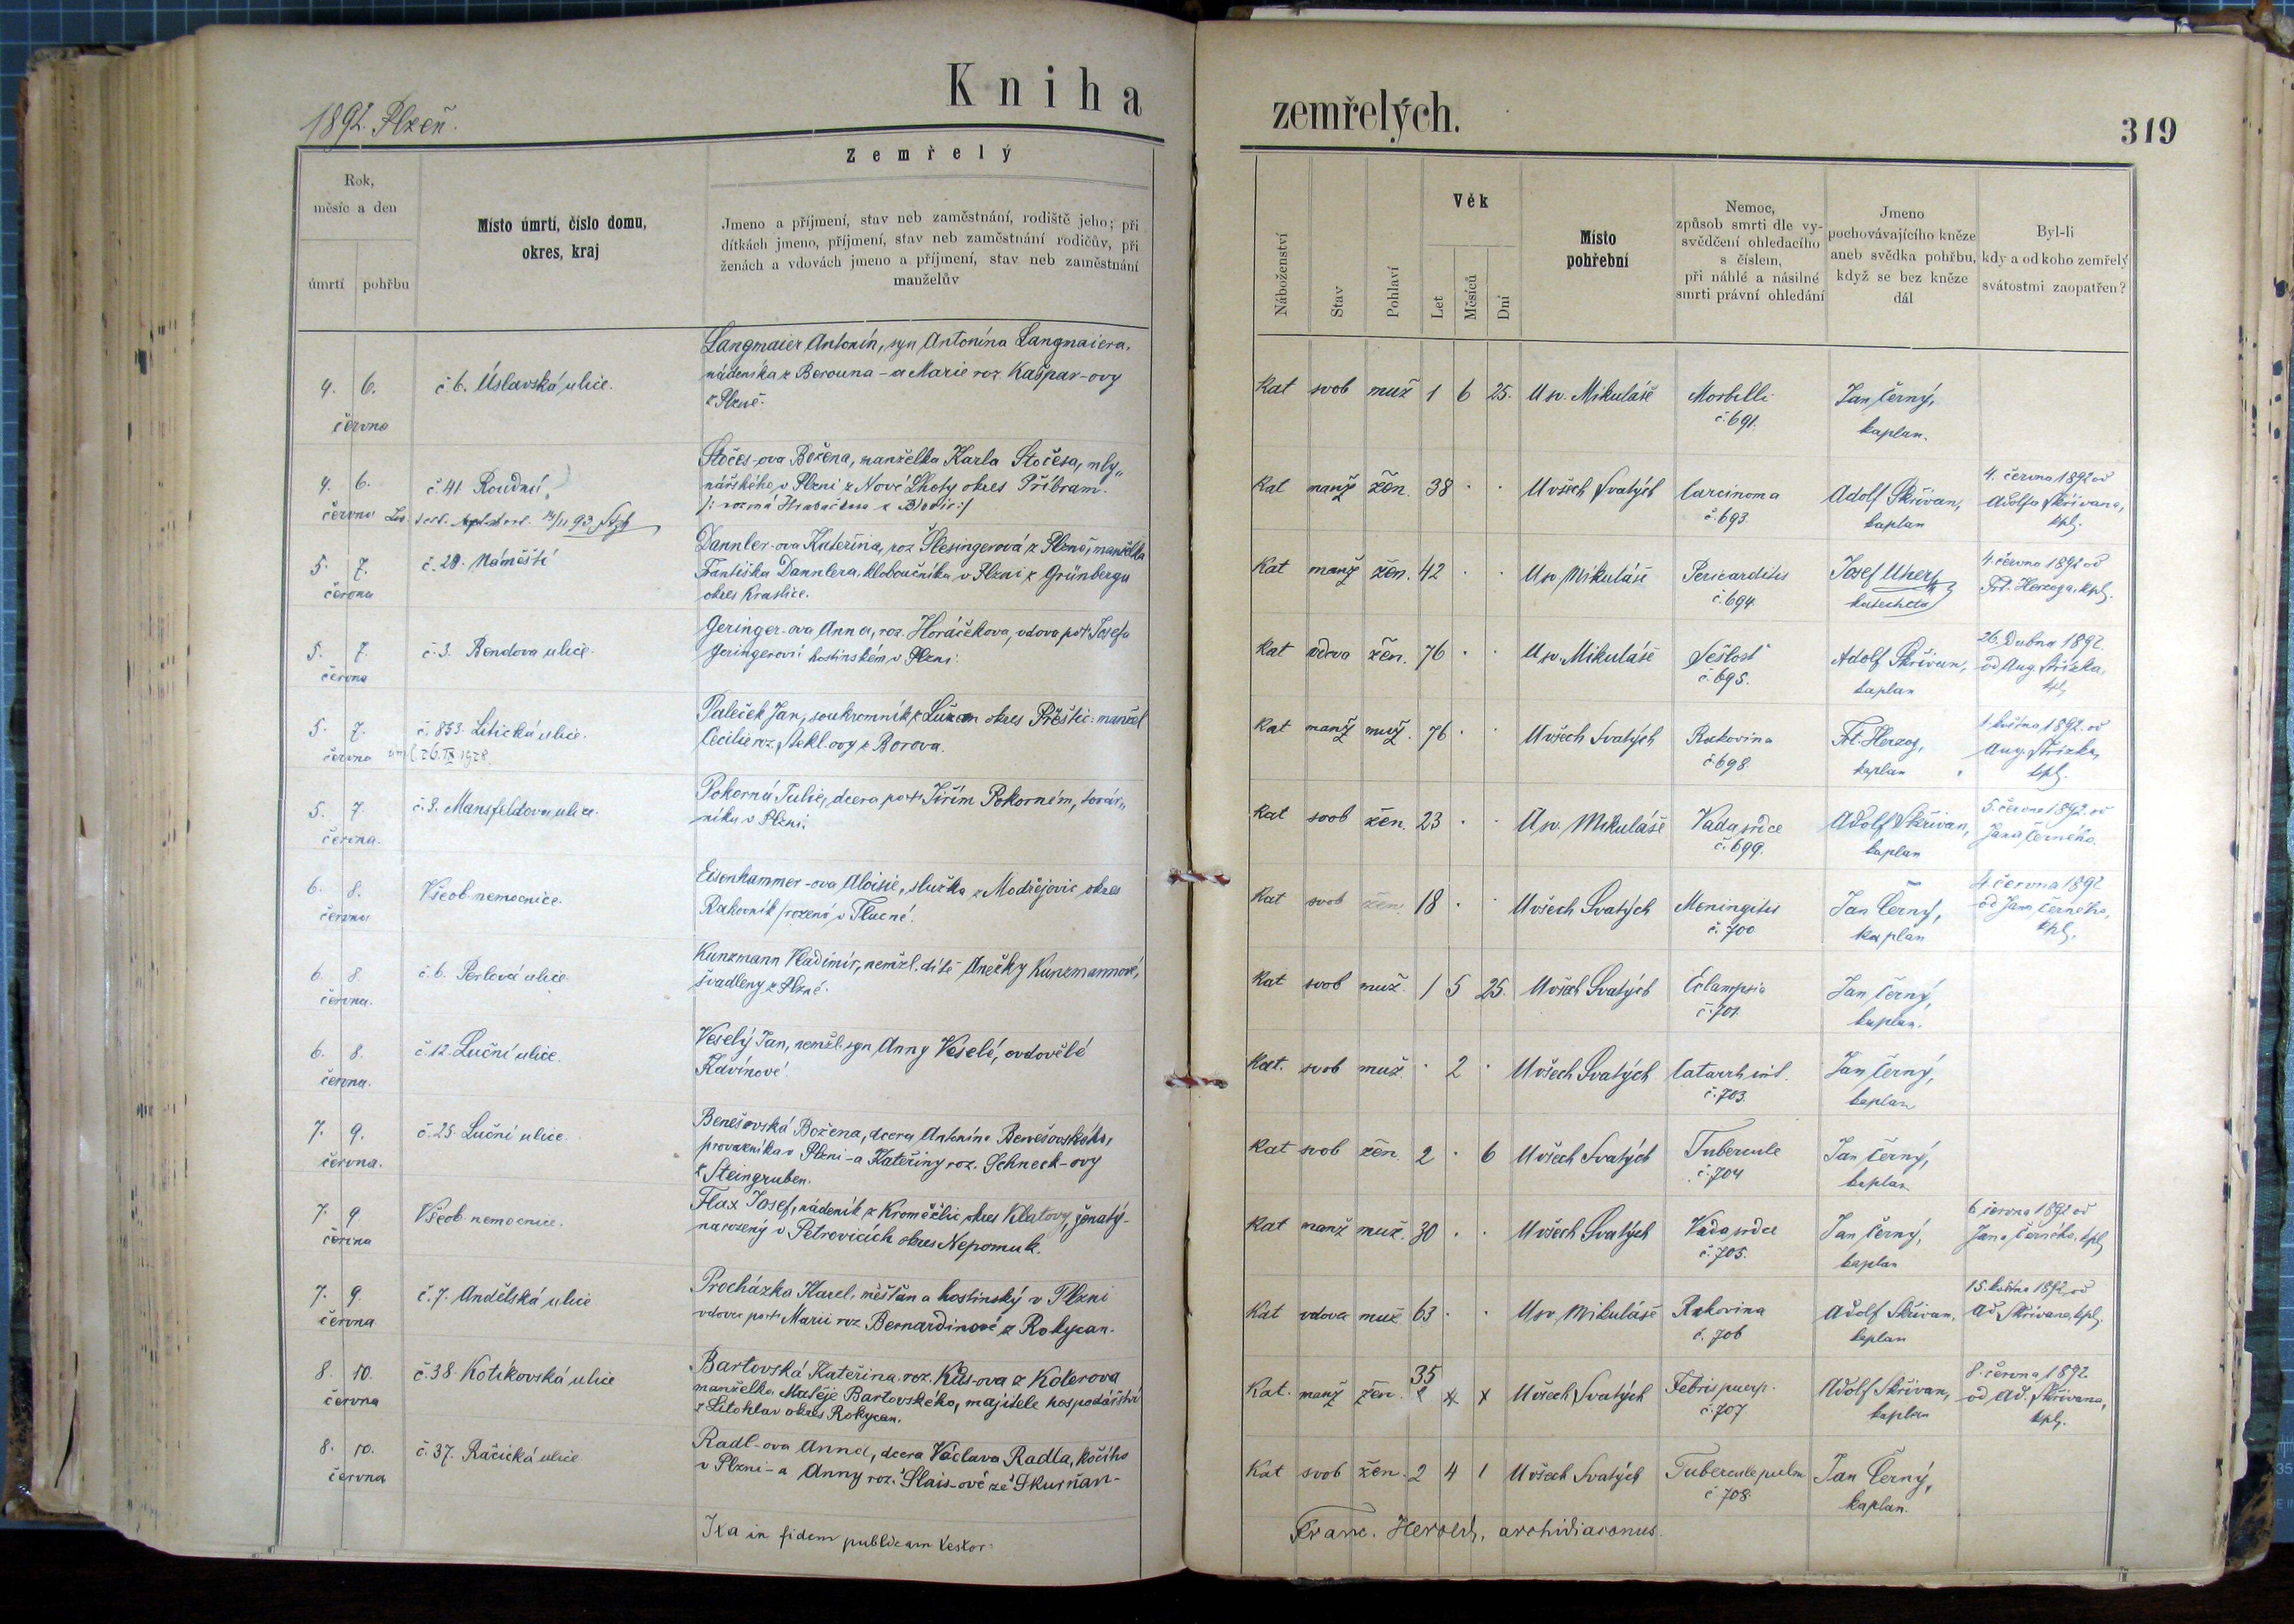 Kniha
zemřelých.
319
1892. Plzeň.
Zemřelý
Rok,
měsíc a den
úmrtí
pohřbu
Místo úmrtí, číslo domu,
okres, kraj
Jmeno a příjmení, stav neb zaměstnání, rodiště jeho; při
dítkách jmeno, příjmení, stav neb zaměstnání rodičův, při
ženách a vdovách jmeno a příjmení, stav neb zaměstnání
manželův
Náboženství
Stav
Pohlaví
Věk
Let
Měsíců
Dní
Místo
pohřební
Nemoc,
způsob smrti dle vy-
svědčení ohledacího
s číslem,
při náhlé a násilné
smrti právní ohledání
Jmeno
pochovávajícího kněze
aneb svědka pohřbu,
když se bez kněze
dál
Byl-li
kdy a od koho zemřelý
svátostmi zaopatřen?
4. 6.
června
č 6. Úslavská ulice.
Langmaier Antonín, syn Antonína Langmaiera,
nádeníka z Berouna - a Marie roz. Kašpar-ovy
z Plzně.
Kat svob muž 1 6 25. U sv. Mikuláše
Morbilli
č. 691.
Jan Černý,
kaplan.
4. 6.
června
č 41 Roudní
Stočes-ova Božena, manželka Karla Stočesa, mly„
nářského v Plzni z Nové Lhoty okres Příbram.
Kat manž žen. 38 . . U všech Svatých
Carcinoma
č. 693.
Adolf Skřivan,
kaplan
4. června 1892 od
Adolfa Skřivana,
kpl.
5. 7.
června
č. 20. Náměstí
Dannler-ova Kateřina, roz Šlesingerová z Plzně, manželka
Františka Dannlera, kloboučníka v Plzni z Grünbergu
okres Kraslice.
Kat manž žen. 42 . . U sv Mikuláše
Pericarditis
č. 694
Josef Uher
katecheta
4. června 1892 od
Frt. Herzoga, kpl.
5. 7.
června
č. 3. Bendova ulice.
Geringer-ova Anna, roz. Horáčkova, vdova po † Josefu
Geringerovi hostinském v Plzni.
Kat vdova žen. 76 . . U sv. Mikuláše
Sešlost
č. 695.
Adolf Skřivan,
kaplan
26. Dubna 1892.
od Aug. Střízka,
kpl.
5. 7.
června
č. 853. Litická ulice.
26. IX 1928.
Paleček Jan, soukromník z Lužan okres Přeštic: manžel
Cecilie roz. Stekl-ovy z Borova.
Kat manž muž. 76 . . U všech Svatých
Rakovina
č. 698.
Frt. Herzog,
kaplan
1. května 1892. od
Aug. Střízka,
kpl.
5. 7.
června.
č. 3. Mansfeldova ulice.
Pokorná Julie, dcera po † Jiřím Pokorném, továr„
níku v Plzni.
Kat svob žen. 23 . . U sv. Mikuláše
Vada srdce
č. 699.
Adolf Skřivan,
kaplan
5. června 1892. od
Jana Černého.
6. 8.
června
Všeob. nemocnice.
Eisenhammer-ova Aloisie, služka z Modřejovic okres
Rakovník / rození v Tlucné.
Kat svob žen. 18 . . U všech Svatých
Meningitis
č. 700
Jan Černý,
kaplan
4 června 1892
od Jana Černého,
kpl.
6. 8
června.
č. 6. Perlová ulice.
Kunzmann Vladimír, nemžel. dítě Anežky Kunzmannové,
švadleny z Plzně.
Kat svob muž. 1 5 25. U všech Svatých
Eclampsia
č. 701.
Jan Černý,
kaplan.
6. 8.
června.
č. 12. Luční ulice.
Veselý Jan, nemžl. syn Anny Veselé, ovdovělé
Kavínové
Kat. svob muž. . 2 . U všech Svatých
Catarrh int.
č. 703.
Jan Černý,
kaplan
7. 9.
června.
č. 25. Luční ulice.
Benešovská Božena, dcera Antonína Benešovského,
provazníka v Plzni - a Kateřiny roz. Schneck-ovy
z Steingruben.
Kat svob žen. 2 . 6 U všech Svatých
Tubercule
č. 704
Jan Černý,
kaplan
7. 9
června
Všeob. nemocnice.
Flax Josef, nádeník z Kroměždic okres Klatovy, ženatý -
narozený v Petrovicích okres Nepomuk.
Kat manž muž. 30 . . U všech Svatých
Vada srdce
č. 705.
Jan Černý,
kaplan
6 června 1892 od
Jana Černého, kpl
7. 9.
června
č. 7. Andělská ulice
Procházka Karel, měšťan a hostinský v Plzni
vdovec po † Marii roz Bernardinové z Rokycan.
Kat vdovec muž. 63 . . U sv Mikuláše
Rakovina
č. 706
Adolf Skřivan.
kaplan
15. května 1892 od
Ad. Skřivana, kpl.
8. 10.
června
č. 38. Kotíkovská ulice
Bartovská Kateřina, roz. Kůs-ova z Kolerova
manželka Matěje Bartovského, majitele hospodářství
z Litohlav okres Rokycan.
Kat. manž žen. 35 x x U všech Svatých
Febris puerp.
č. 707
Adolf Skřivan,
kaplan
8. června 1892
od Ad. Skřivana,
kpl.
8. 10.
června
č. 37. Račická ulice
Radl-ova Anna, dcera Václava Radla, kočího
v Plzni - a Anny roz. Slais-ové ze Skurňan-
Kat svob žen. 2 4 1 U všech Svatých
Tubercule pulm
č 708.
Jan Černý,
kaplan.
Ita in fidem publicam testor.
Franc. Herold, archidiaconus.